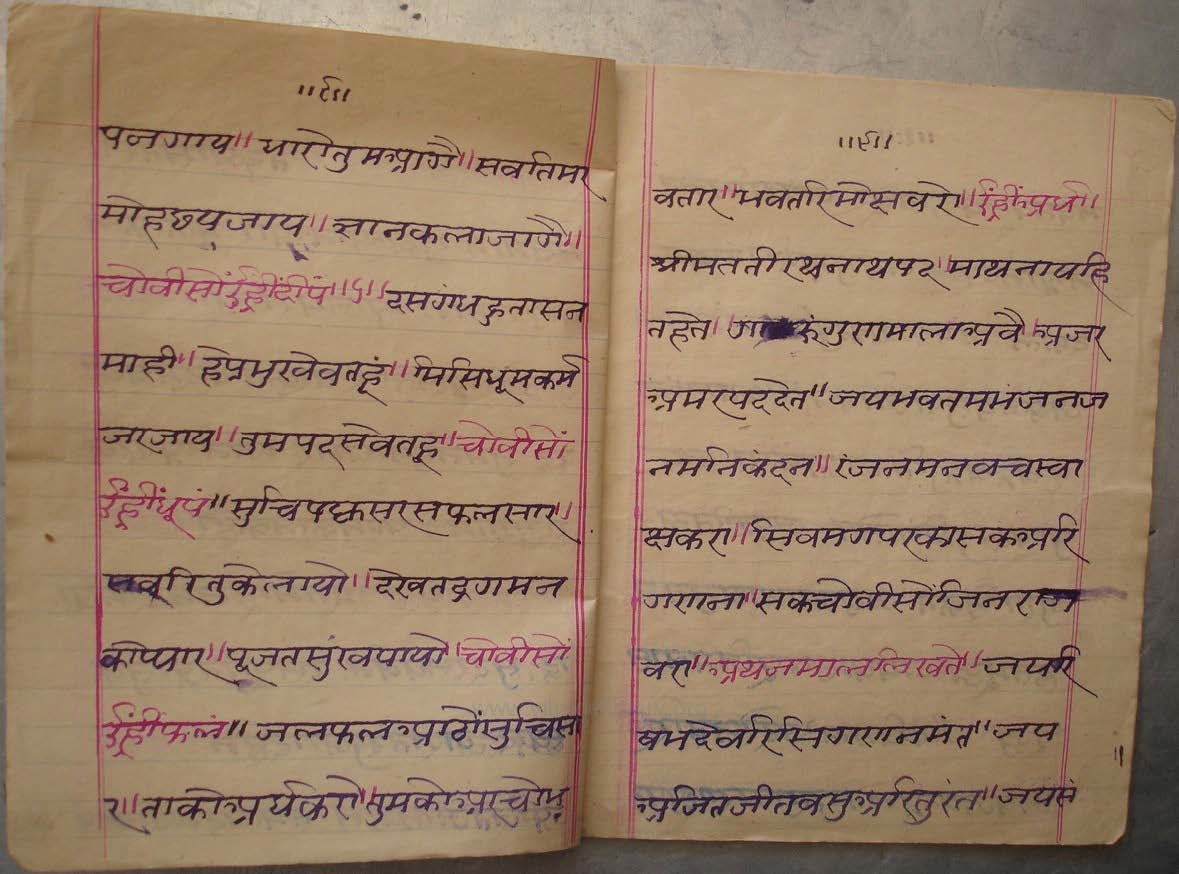 ॥८॥
पजगाय॥ धारोतुमआगै॥ सर्वतिमर
मोहछयजाय॥ ज्ञानकलाजागै॥
चोवीसों ॐह्रीं दीपं॥५॥ दसगंधहुतासन
माही॥ हेप्रभुखेवतहूं॥ मिसिधूमकर्म
जरजाय॥ तुमपदसेवतहूं॥ चोवीसों
ॐह्रींधूपं॥ सुचिपक्कसरसफलसार॥
सवरितुकेलायो॥ देखतद्रगमन
कोप्यार॥ पूजतसुखपायो॥ चोवीसों
ॐह्रींफलं॥ जलफलआठोंसुचिसा
र॥ ताकोअर्घकरों॥ तुमकोअरचोभ
॥९॥
वतार॥ भवतरिमोक्षवरो॥ ॐह्रींअर्घ॥
श्रीमततीरथनाथपद॥ माथनायहि
तहेत॥ गा गुणमालाअवै॥ अजर
अमरपददेत॥ जयभवतमभंजनज
नमनिकंदन॥ रंजनमनवचस्वा
क्षकरा॥ सिवमगपरकासकअरि
गणना॥ सकचोवीसोंजिनराज
वरा॥ अथजैमाललिखते॥ जयरि
षभदेवरिसिगणनिमंत॥ जय
अजितजीतवसुअरितुरंत॥ जयसं